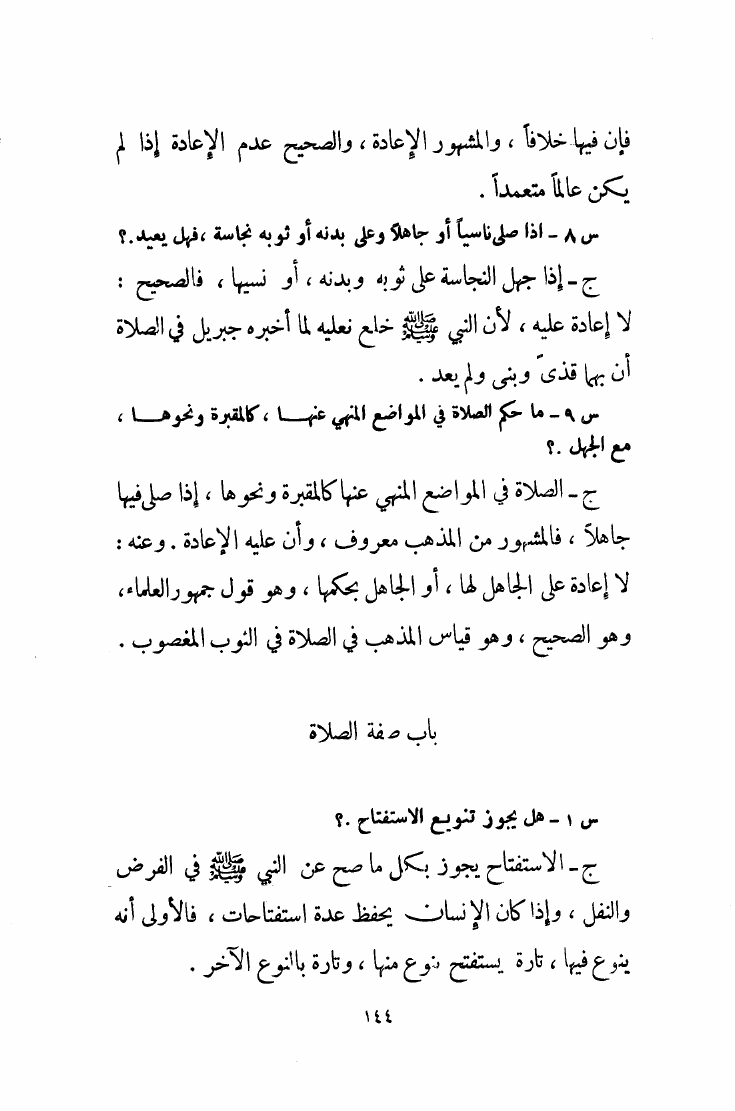 فإن فيها خلافاً ، والمشهور الإعادة ، والصحيح عدم الإعادة إذا لم
يكن عالماً متعمداً .
س ٨ – اذا صلى ناسياً أو جاهلاً وعلى بدنه أو ثوبه نجاسة ، فهل يعيد .؟
ج – إذا جهل النجاسة على ثوبه وبدنه ، أو نسيها ، فالصحيح :
لا إعادة عليه ، لأن النبي ﷺ خلع نعليه لما أخبره جبريل في الصلاة
أن بهما قذىً وبنى ولم يعد .
س ٩ – ما حكم الصلاة في المواضع المنهي عنهـا ، كالمقبرة ونحوهـا ،
مع الجهل .؟
ج – الصلاة في المواضع المنهي عنها كالمقبرة ونحوها ، إذا صلى فيها
جاهلاً ، فالمشهور من المذهب معروف ، وأن عليه الإعادة . وعنه :
لا إعادة على الجاهل لها ، أو الجاهل بحكمها ، وهو قول جمهور العلماء ،
وهو الصحيح ، وهو قياس المذهب في الصلاة في الثوب المغصوب .
باب صفة الصلاة
س ١ – هل يجوز تنويع الاستفتاح .؟
ج – الاستفتاح يجوز بكل ما صح عن النبي ﷺ في الفرض
والنفل ، وإذا كان الإنسان يحفظ عدة استفتاحات ، فالأولى أنه
ينوع فيها ، تارة يستفتح بنوع منها ، وتارة بالنوع الآخر .
١٤٤